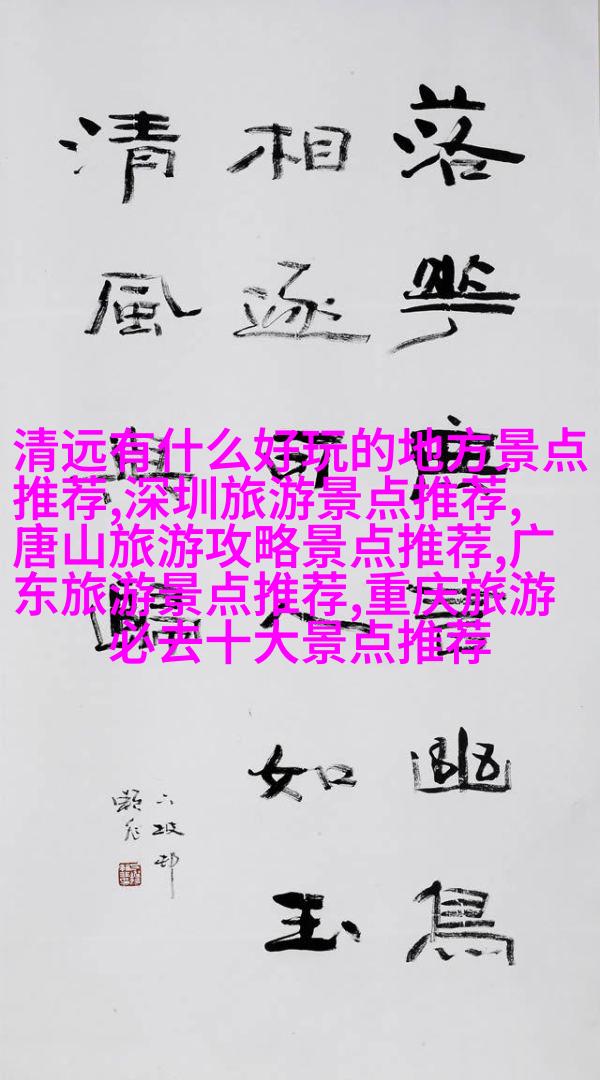 清远有什么好玩的地方景点
推荐,深圳旅游景点推荐,
唐山旅游攻略景点推荐,广
东旅游景点推荐,重庆旅游
必去十大景点推荐
落華無言幽鳥
相逐可人如玉
清風與歸